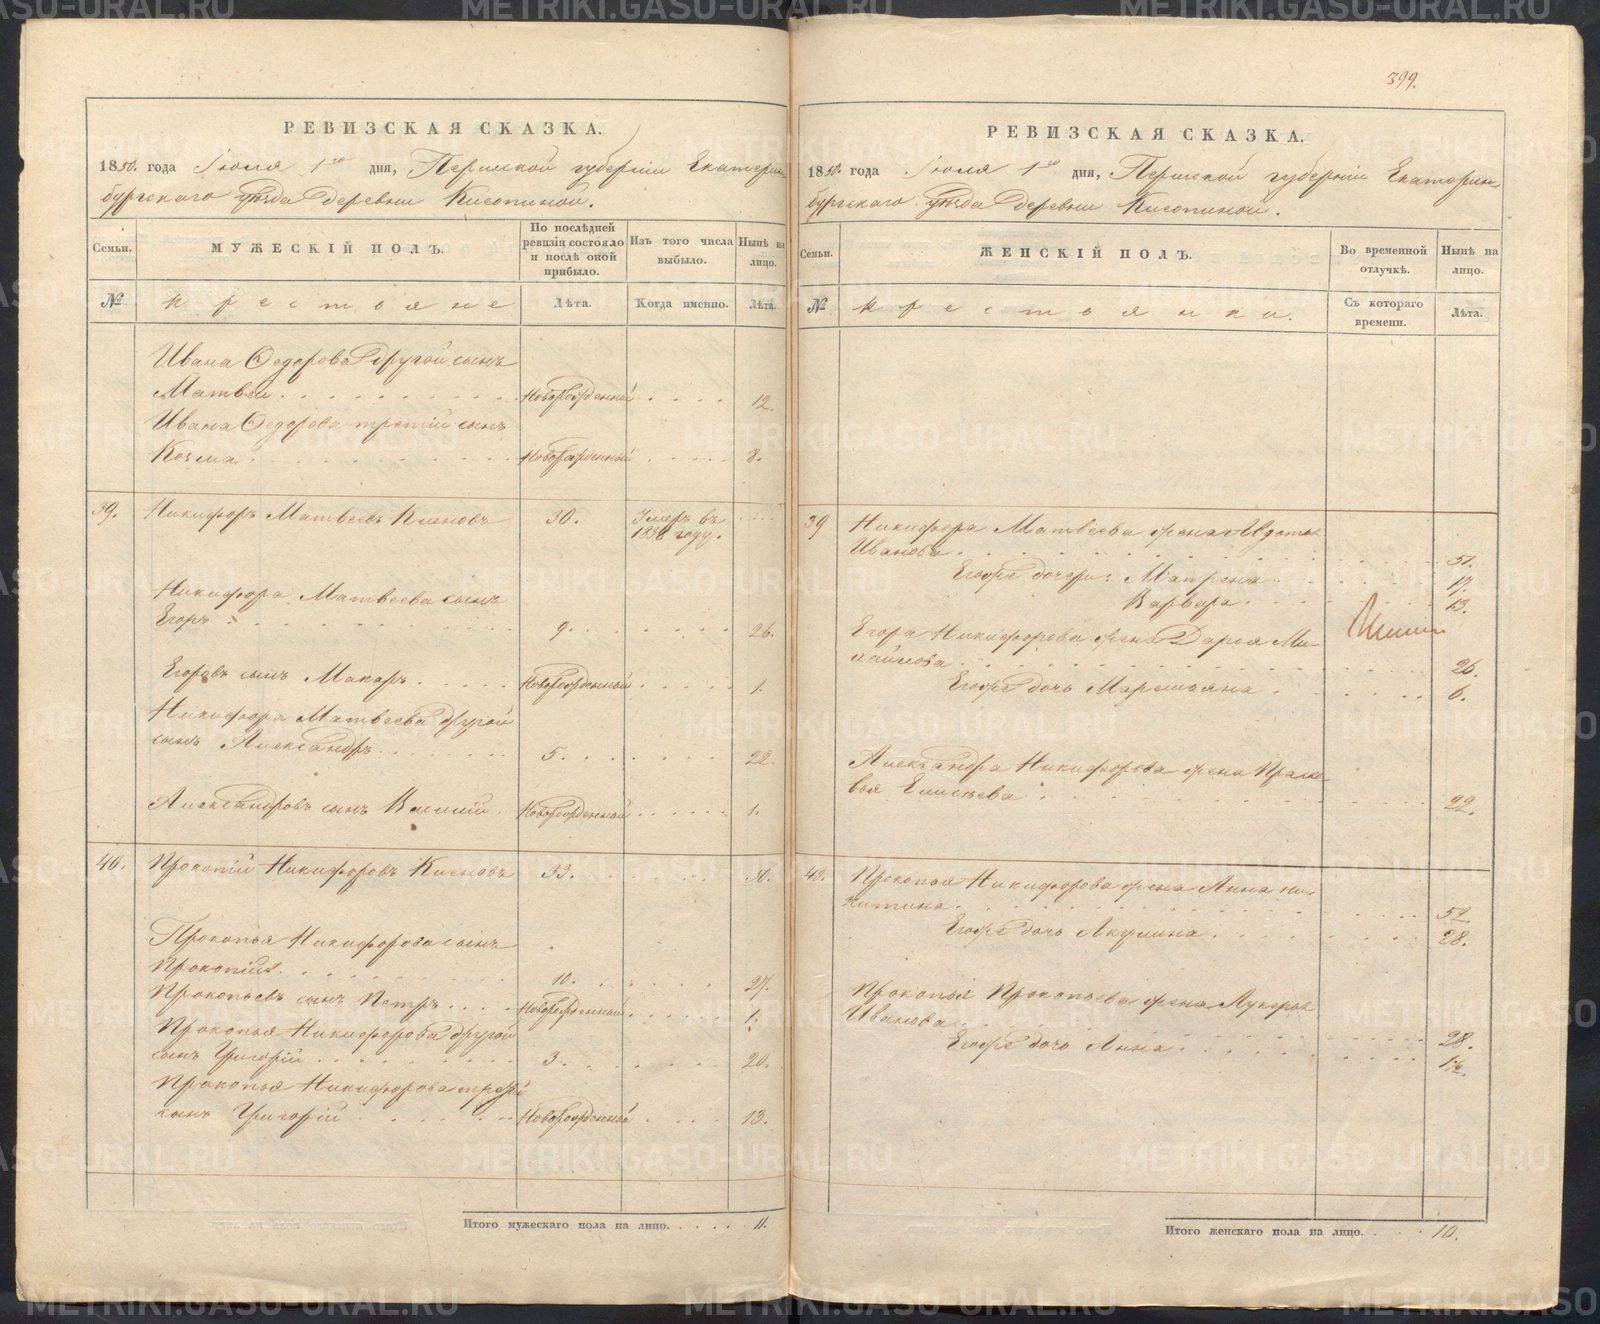 399.
РЕВИЗСКАЯ СКАЗКА.
1850. года Іюля 1го дня, Пермской губерніи Екатерин-
бургскаго уѣзда деревни
Семьи. МУЖЕСКІЙ ПОЛЪ. По послѣдней ревизіи состояло и послѣ оной прибыло. Изъ того числа выбыло. Нынѣ на лицо.
№ крестьяне Лѣта. Когда именно. Лѣта.
Ивана Ѳедорова другой сынъ
Матвей Новорожденный 12.
Ивана Ѳедорова третій сынъ
Козма Новорожденный 8.
39. Никифоръ Матвеевъ 30. Умеръ въ
1838 году.
Никифора Матвеева сынъ
Егоръ 9. 26.
Егоровъ сынъ Макаръ Новорожденный 1.
Никифора Матвеева другой
сынъ Александръ 5. 22.
Александровъ сынъ Новорожденный 1.
40. Прокопій Никифоровъ 33.
Прокопья Никифорова сынъ
Прокопій 10. 27.
Прокопьевъ сынъ Петръ Новорожденный 1.
Прокопья Никифорова другой
сынъ Григорій 3. 20.
Прокопья Никифорова третій
сынъ Григорій Новорожденный 13.
Итого мужескаго пола на лицо. 11.
РЕВИЗСКАЯ СКАЗКА.
1850. года Іюля 1го дня, Пермской губерніи Екатерин-
бургскаго уѣзда деревни
Семьи. ЖЕНСКІЙ ПОЛЪ. Во временной отлучкѣ. Нынѣ на лицо.
№ крестьянки. Съ котораго времени. Лѣта.
39 Никифора Матвеева жена Авдотья
Иванова
Егоже дочери: Матрена 17.
Варвара 13.
Егора Никифорова жена Дарья Ми-
хайлова 26.
Егоже дочь Маремьяна 6.
Александра Никифорова жена Праско-
вья Елисѣева 22.
40. Прокопья Никифорова жена Анна Ни-
китина
Егоже дочь Акулина 28.
Прокопья Прокопьева жена Лукерья
Иванова 28.
Егоже дочь Анна
Итого женскаго пола на лицо. 10.
METRIKI.GASO-URAL.RU